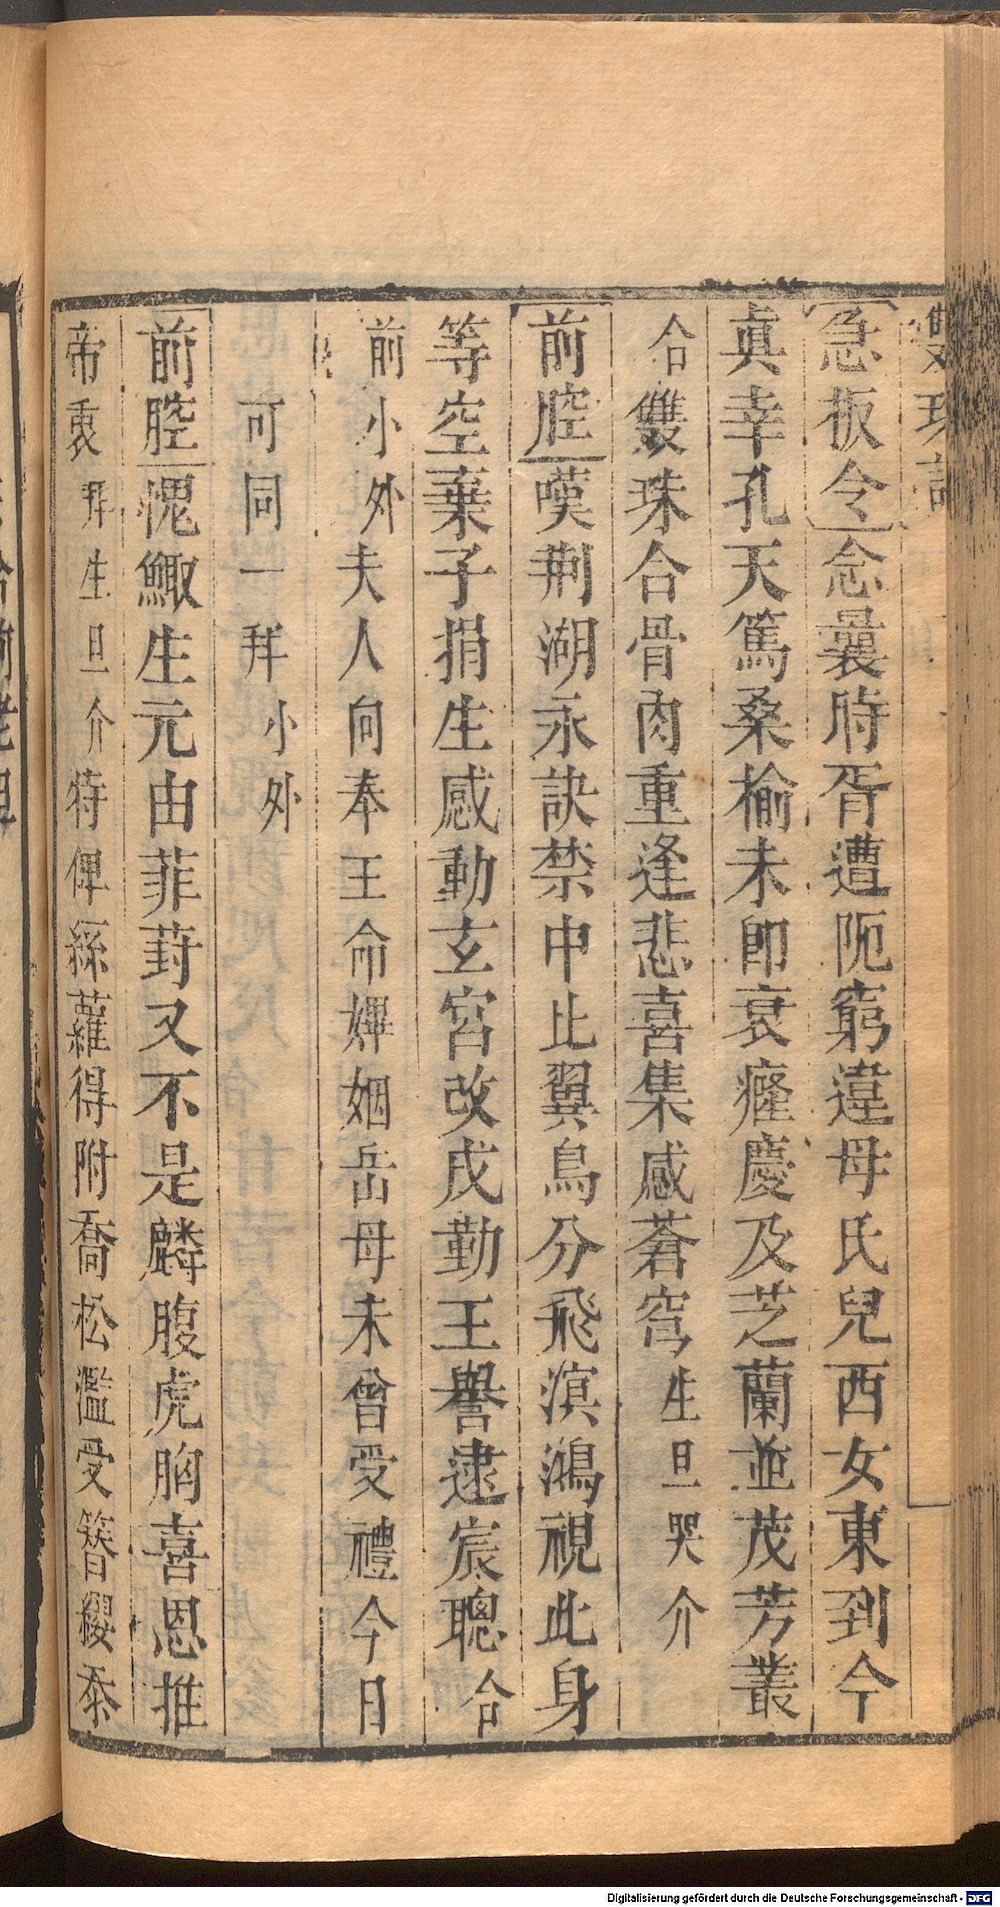 雙珠記
急板令念曩時胥遭阨窮違母氏兒西女東到今
眞幸孔天篤桑榆未卽衰癃慶及芝蘭並茂芳叢
合雙珠合骨肉重逢悲喜集感蒼穹生旦哭介
前腔嘆荆湖永訣禁中比翼鳥分飛溟鴻視此身
等空棄子捐生感動玄宮改戍勤王譽逮宸聰合
前小外夫人向奉王命婚姻岳母未曾受禮今日
可同一拜小外
前腔愧鯫生元由菲葑又不是麟腹虎胸喜恩推
帝衷拜生旦介特俾絲蘿得附喬松濫受簪纓忝
Digitalisierung gefördert durch die Deutsche Forschungsgemeinschaft - DFG